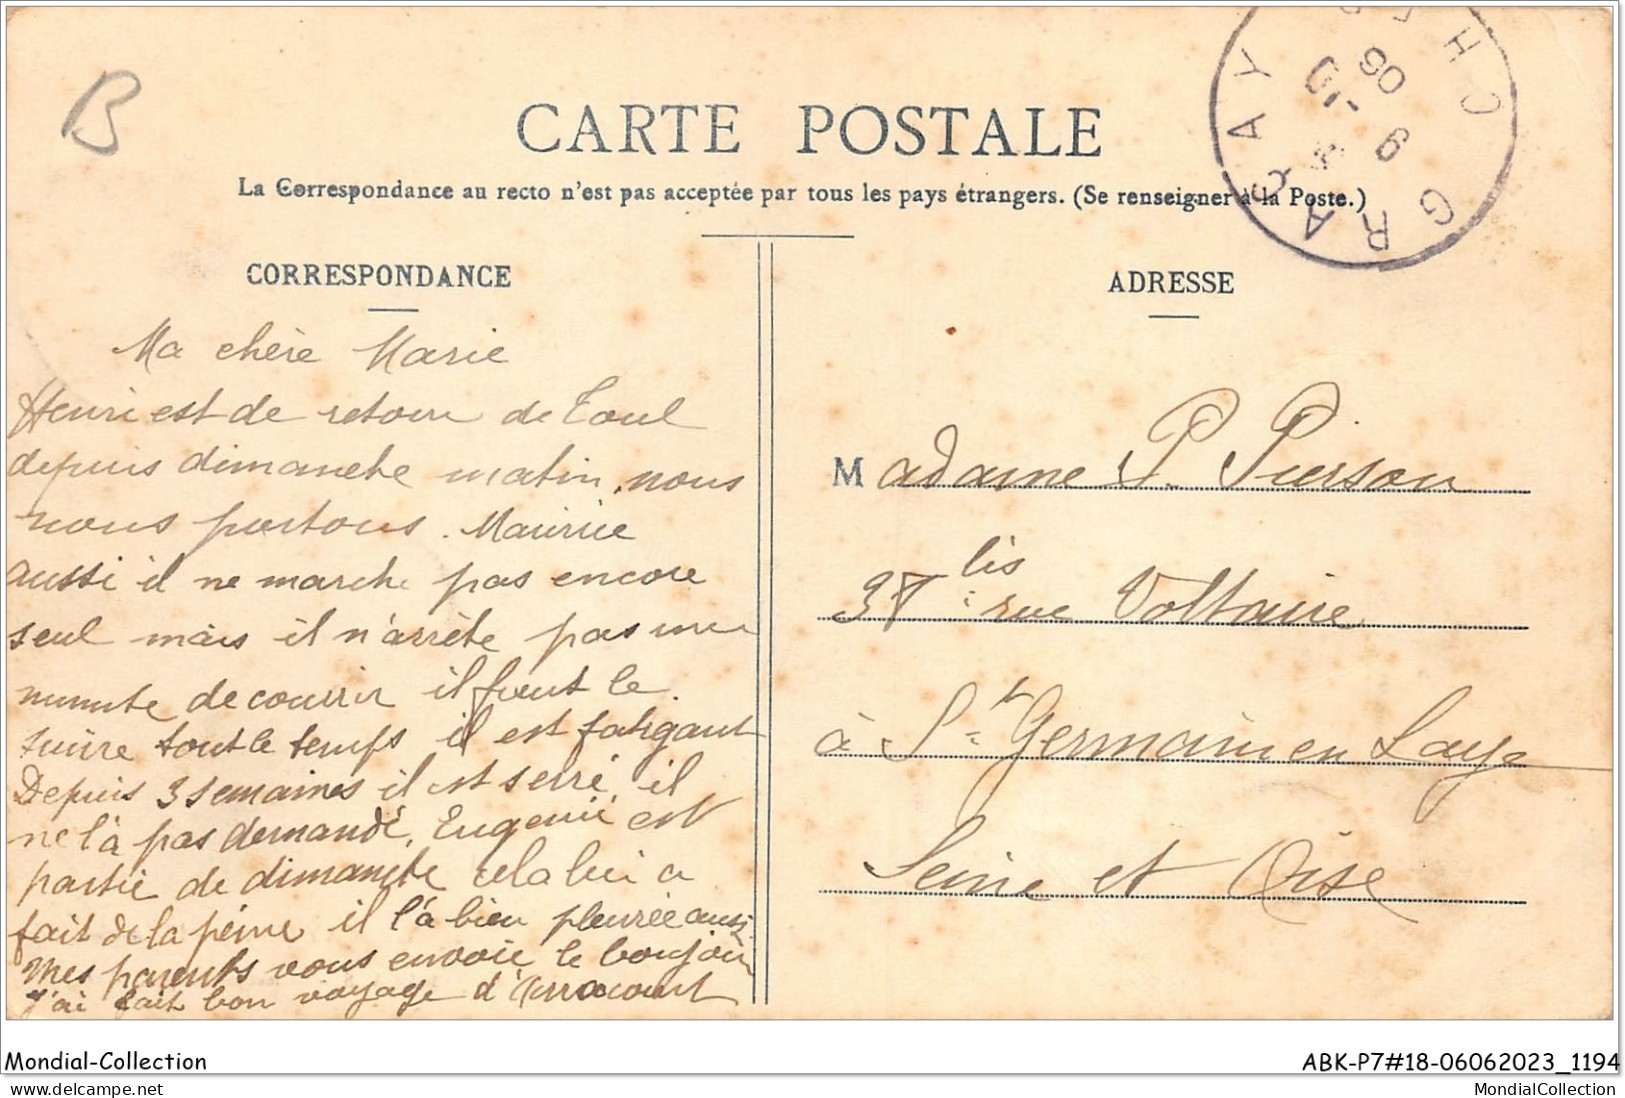 B
CARTE POSTALE
La Correspondance au recto n'est pas acceptée par tous les pays étrangers. (Se renseigner à la Poste.)
CORRESPONDANCE
Ma chère Marie
Henri est de retour de Toul
depuis dimanche matin, nous
nous portons. Maurice
aussi il ne marche pas encore
seul mais il n'arrête pas une
minute de courrir il faut le
suivre tout le temps il est fatigant
Depuis 3 semaines il est serré, il
ne l'à pas demandé, Eugenie est
partie de dimanche cela lui a
fait de la peine il l'à bien pleurée aussi
Mes parents vous envoie le bonjour
J'ai fait bon voyage d'Arracourt
ADRESSE
Madame P. Pierson
37 bis rue Voltaire
à St Germain en Laye
Seine et Oise
GRACAY CHER
9 -10
05
Mondial-Collection
ABK-P7#18-06062023_1194
delcampe.net
MondialCollection